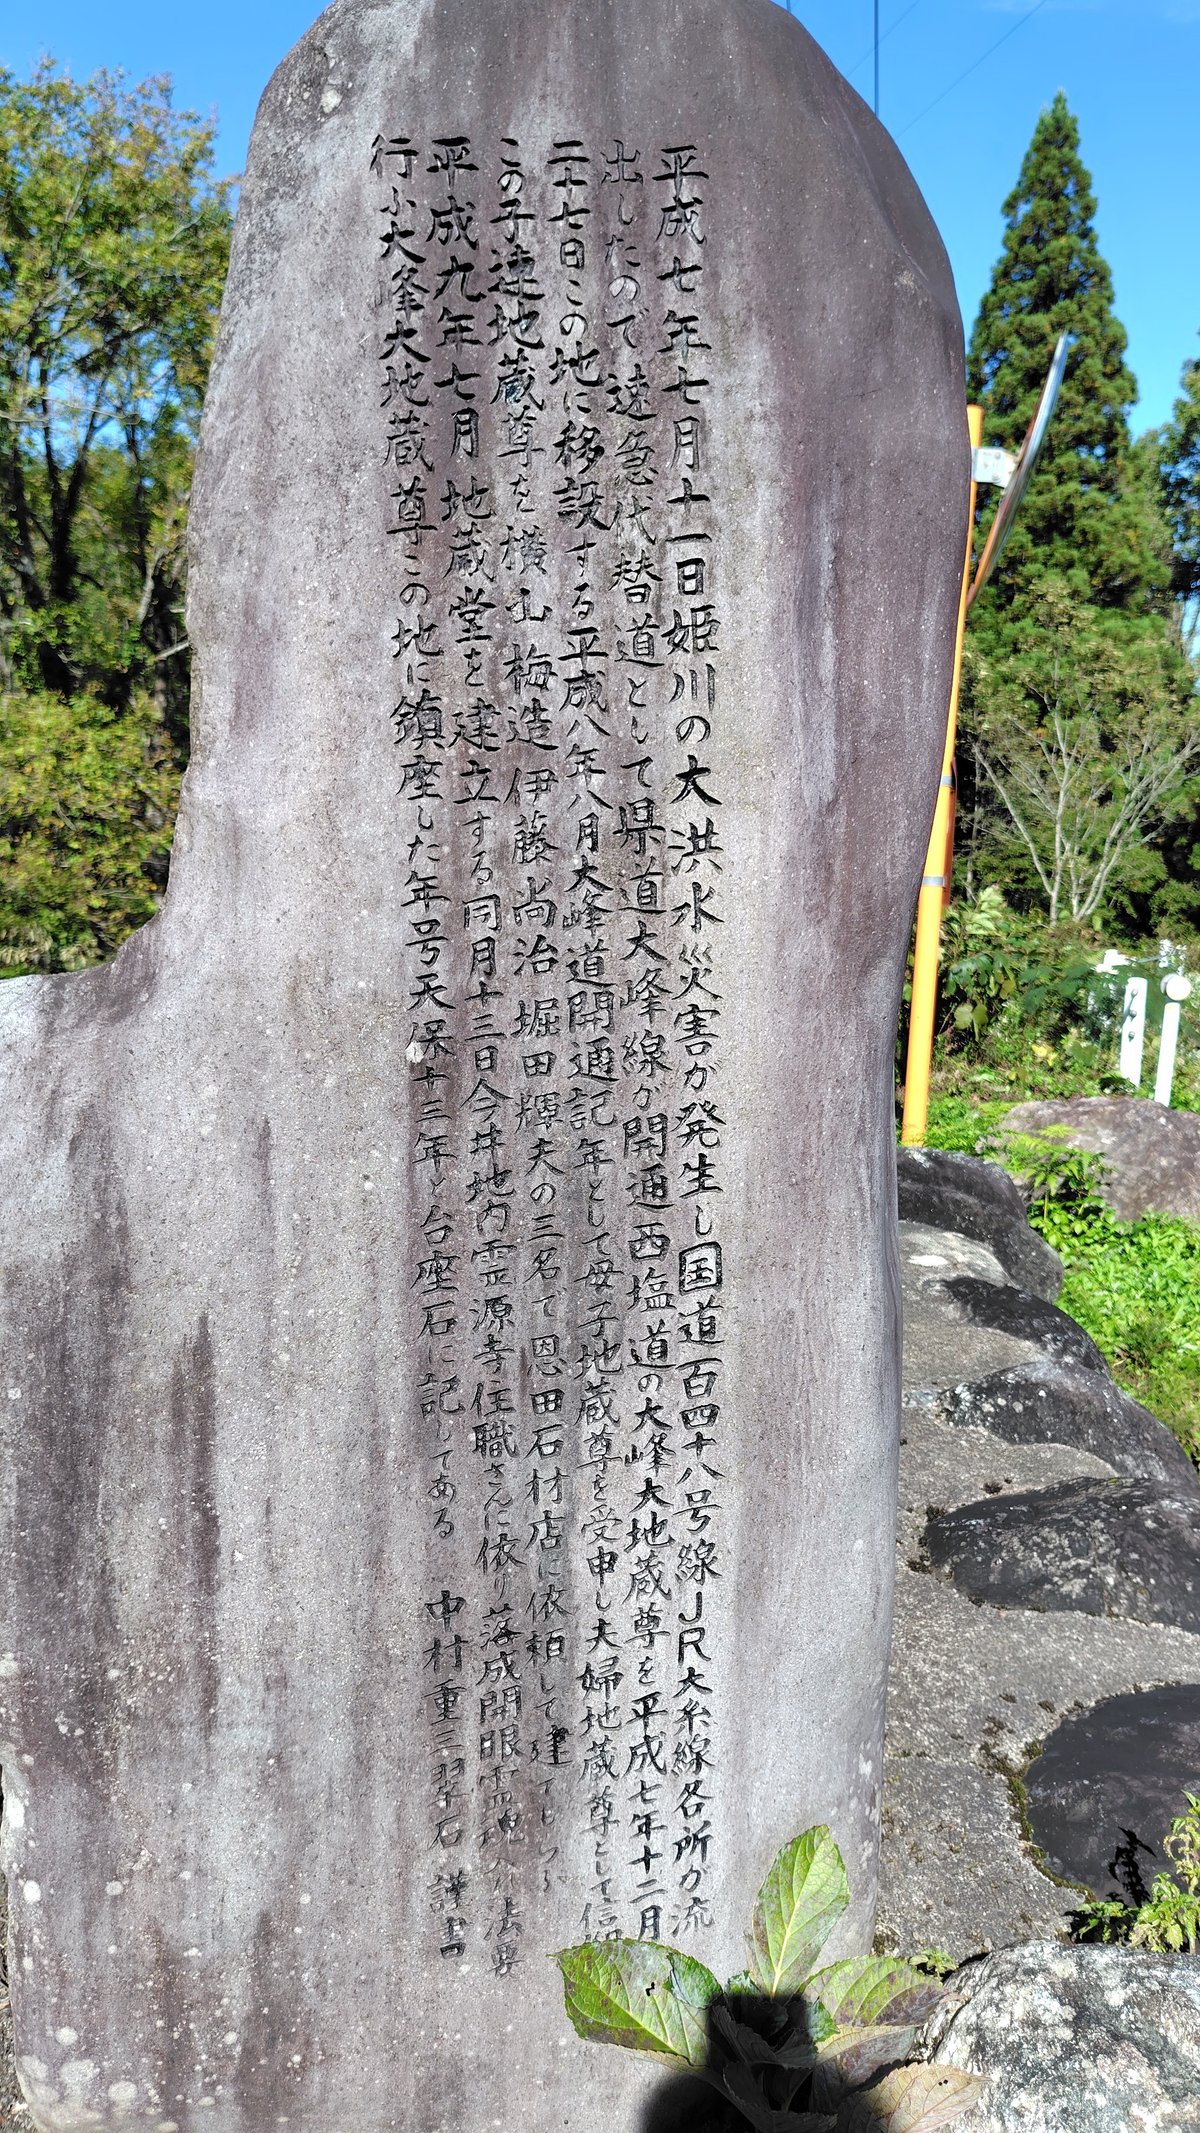 平成七年七月十一日姫川の大洪水災害が発生し国道百四十八号線JR大糸線各所が流
出したので速急代替道として県道大峰線が開通西塩道の大峰大地蔵尊を平成七年十二月
二十七日この地に移設する平成八年八月大峰道開通記年として母子地蔵尊を受申し夫婦地蔵尊として信
この子達地蔵尊を横山梅造 伊藤尚治 堀田輝夫の三名で恩田石材店に依頼して建て
平成九年七月地蔵堂を建立する同月十三日今井地内霊源寺住職さんに依り落成開眼霊魂入れ法要
行ふ大峰大地蔵尊この地に鎮座した年号天保十三年と台座石に記してある 中村重三 翠石 謹書